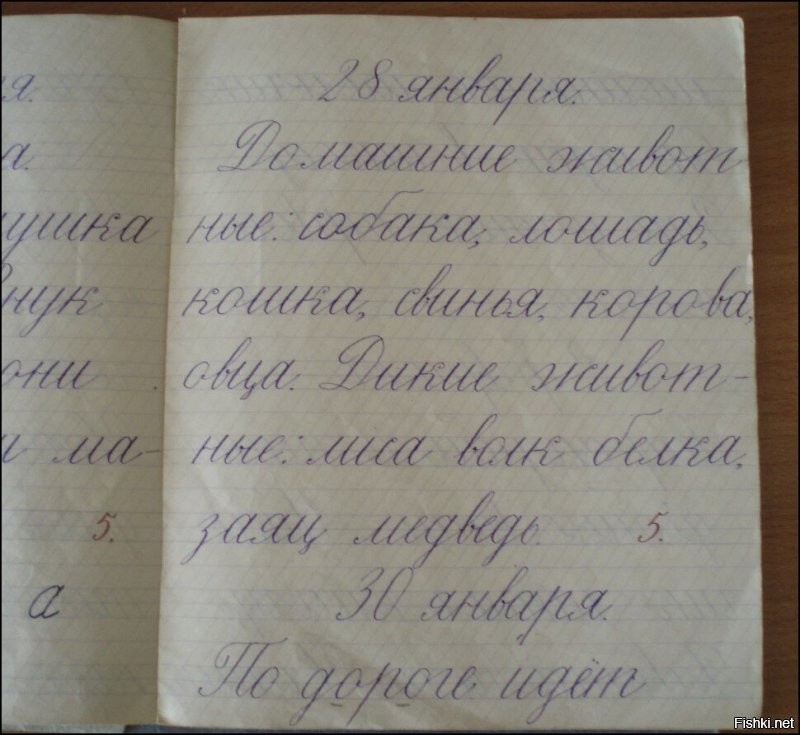 я.
а.
ушка
нук
они
и ма-
5.
а
28 января.
Домашние живот-
ные: собака, лошадь,
кошка, свинья, корова,
овца. Дикие живот-
ные: лиса волк белка,
заяц медведь. 5.
30 января.
По дороге идёт
Fishki.net